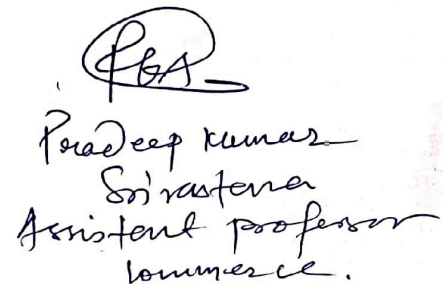 Pradeep Kumar
Srivastava
Assistent professor
Commerce.